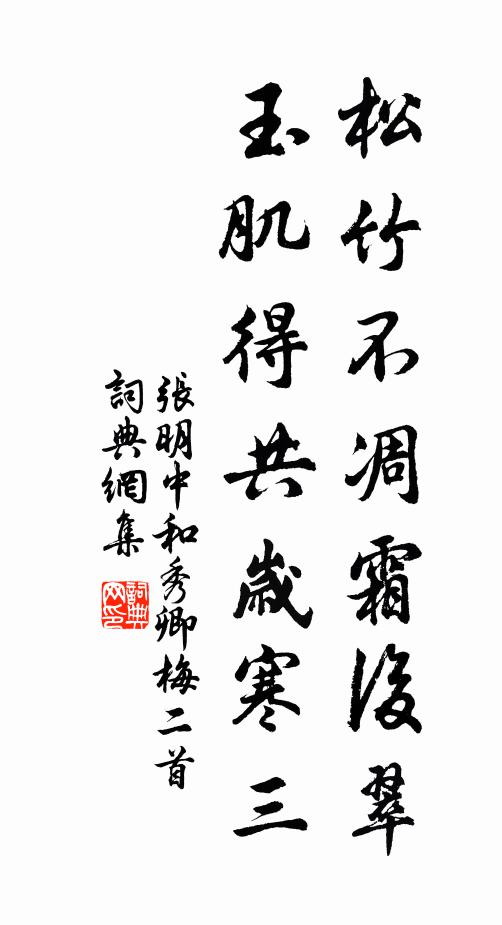 松竹不凋霜後翠
玉肌得共歲寒三
張明中和秀卿梅二首
詞典網集
詞典網印